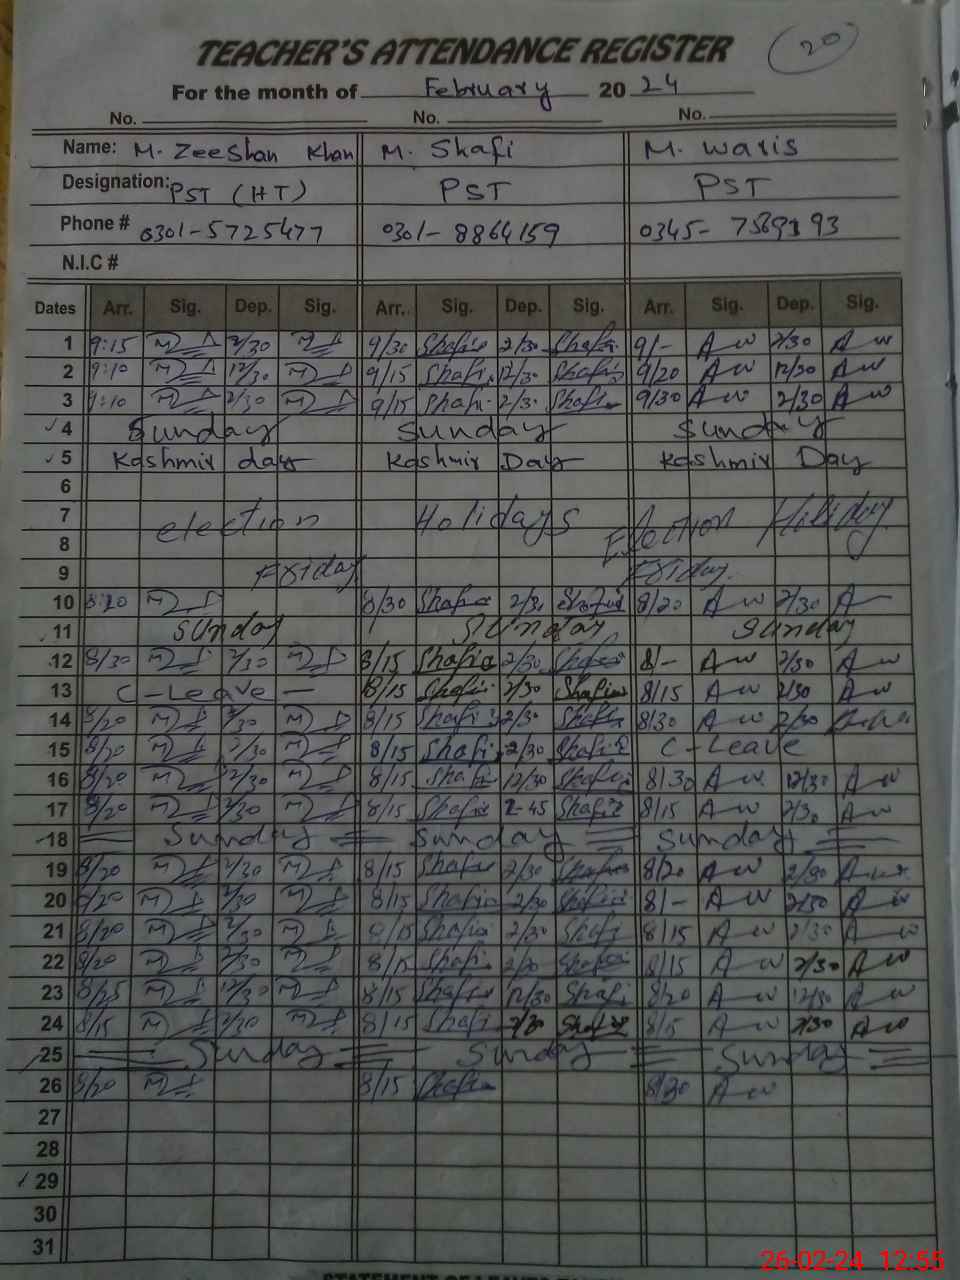 20
TEACHER'S ATTENDANCE REGISTER
For the month of February 20 24
No. No. No.
Name: M. Zeeshan Khan M. Shafi M. Waris
Designation: PST (HT) PST PST
Phone # 0301-5725477 0301-8864159 0345-
N.I.C #
Dates Arr. Sig. Dep. Sig. Arr. Sig. Dep. Sig. Arr. Sig. Dep. Sig.
1 9:15 2/30 9/30 Shafi 2/30 Shafi 9/- 2/30
2 9:10 12/30 9/15 Shafi 12/30 Shafi 9/20 12/30
3 9:10 2/30 9/15 Shafi 2/30 Shafi 9/30 2/30
4 Sunday Sunday Sunday
5 Kashmir day Kashmir Day Kashmir Day
6
7 election Holidays Election Holiday
8
9 Friday Friday
10 8:20 8/30 Shafi 2/30 Shafi 8/20 2/30
11 Sunday Sunday Sunday
12 8/30 2/30 8/15 Shafi 2/30 Shafi 8/- 2/30
13 C-Leave 8/15 Shafi 2/30 Shafi 8/15 2/30
14 8/20 2/30 8/15 Shafi 2/30 Shafi 8/30 2/30
15 8/20 2/30 8/15 Shafi 2/30 Shafi C-Leave
16 8/20 12/30 8/15 Shafi 12/30 Shafi 8/30 12/30
17 8/20 2/30 8/15 Shafi 2-45 Shafi 8/15 2/30
18 Sunday Sunday Sunday
19 8/20 2/30 8/15 Shafi 2/30 Shafi 8/20 2/30
20 8/20 2/30 8/15 Shafi 2/30 Shafi 8/- 2/30
21 8/20 2/30 8/15 Shafi 2/30 Shafi 8/15 2/30
22 8/20 2/30 8/15 Shafi 2/30 Shafi 8/15 2/30
23 8/25 12/30 8/15 Shafi 12/30 Shafi 8/20 12/30
24 8/15 2/30 8/15 Shafi 2/30 Shafi 8/5 2/30
25 Sunday Sunday Sunday
26 8/20 8/15 Shafi 8/30
27
28
29
30
31
26-02-24 12:55